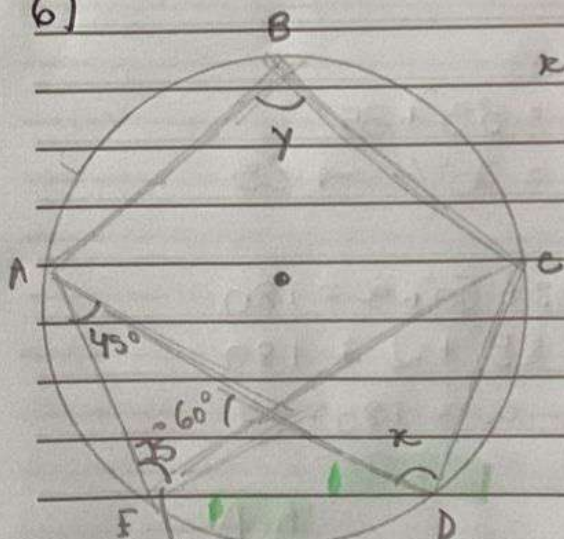 6)
B
x
y
A
C
45°
60°
x
E
D